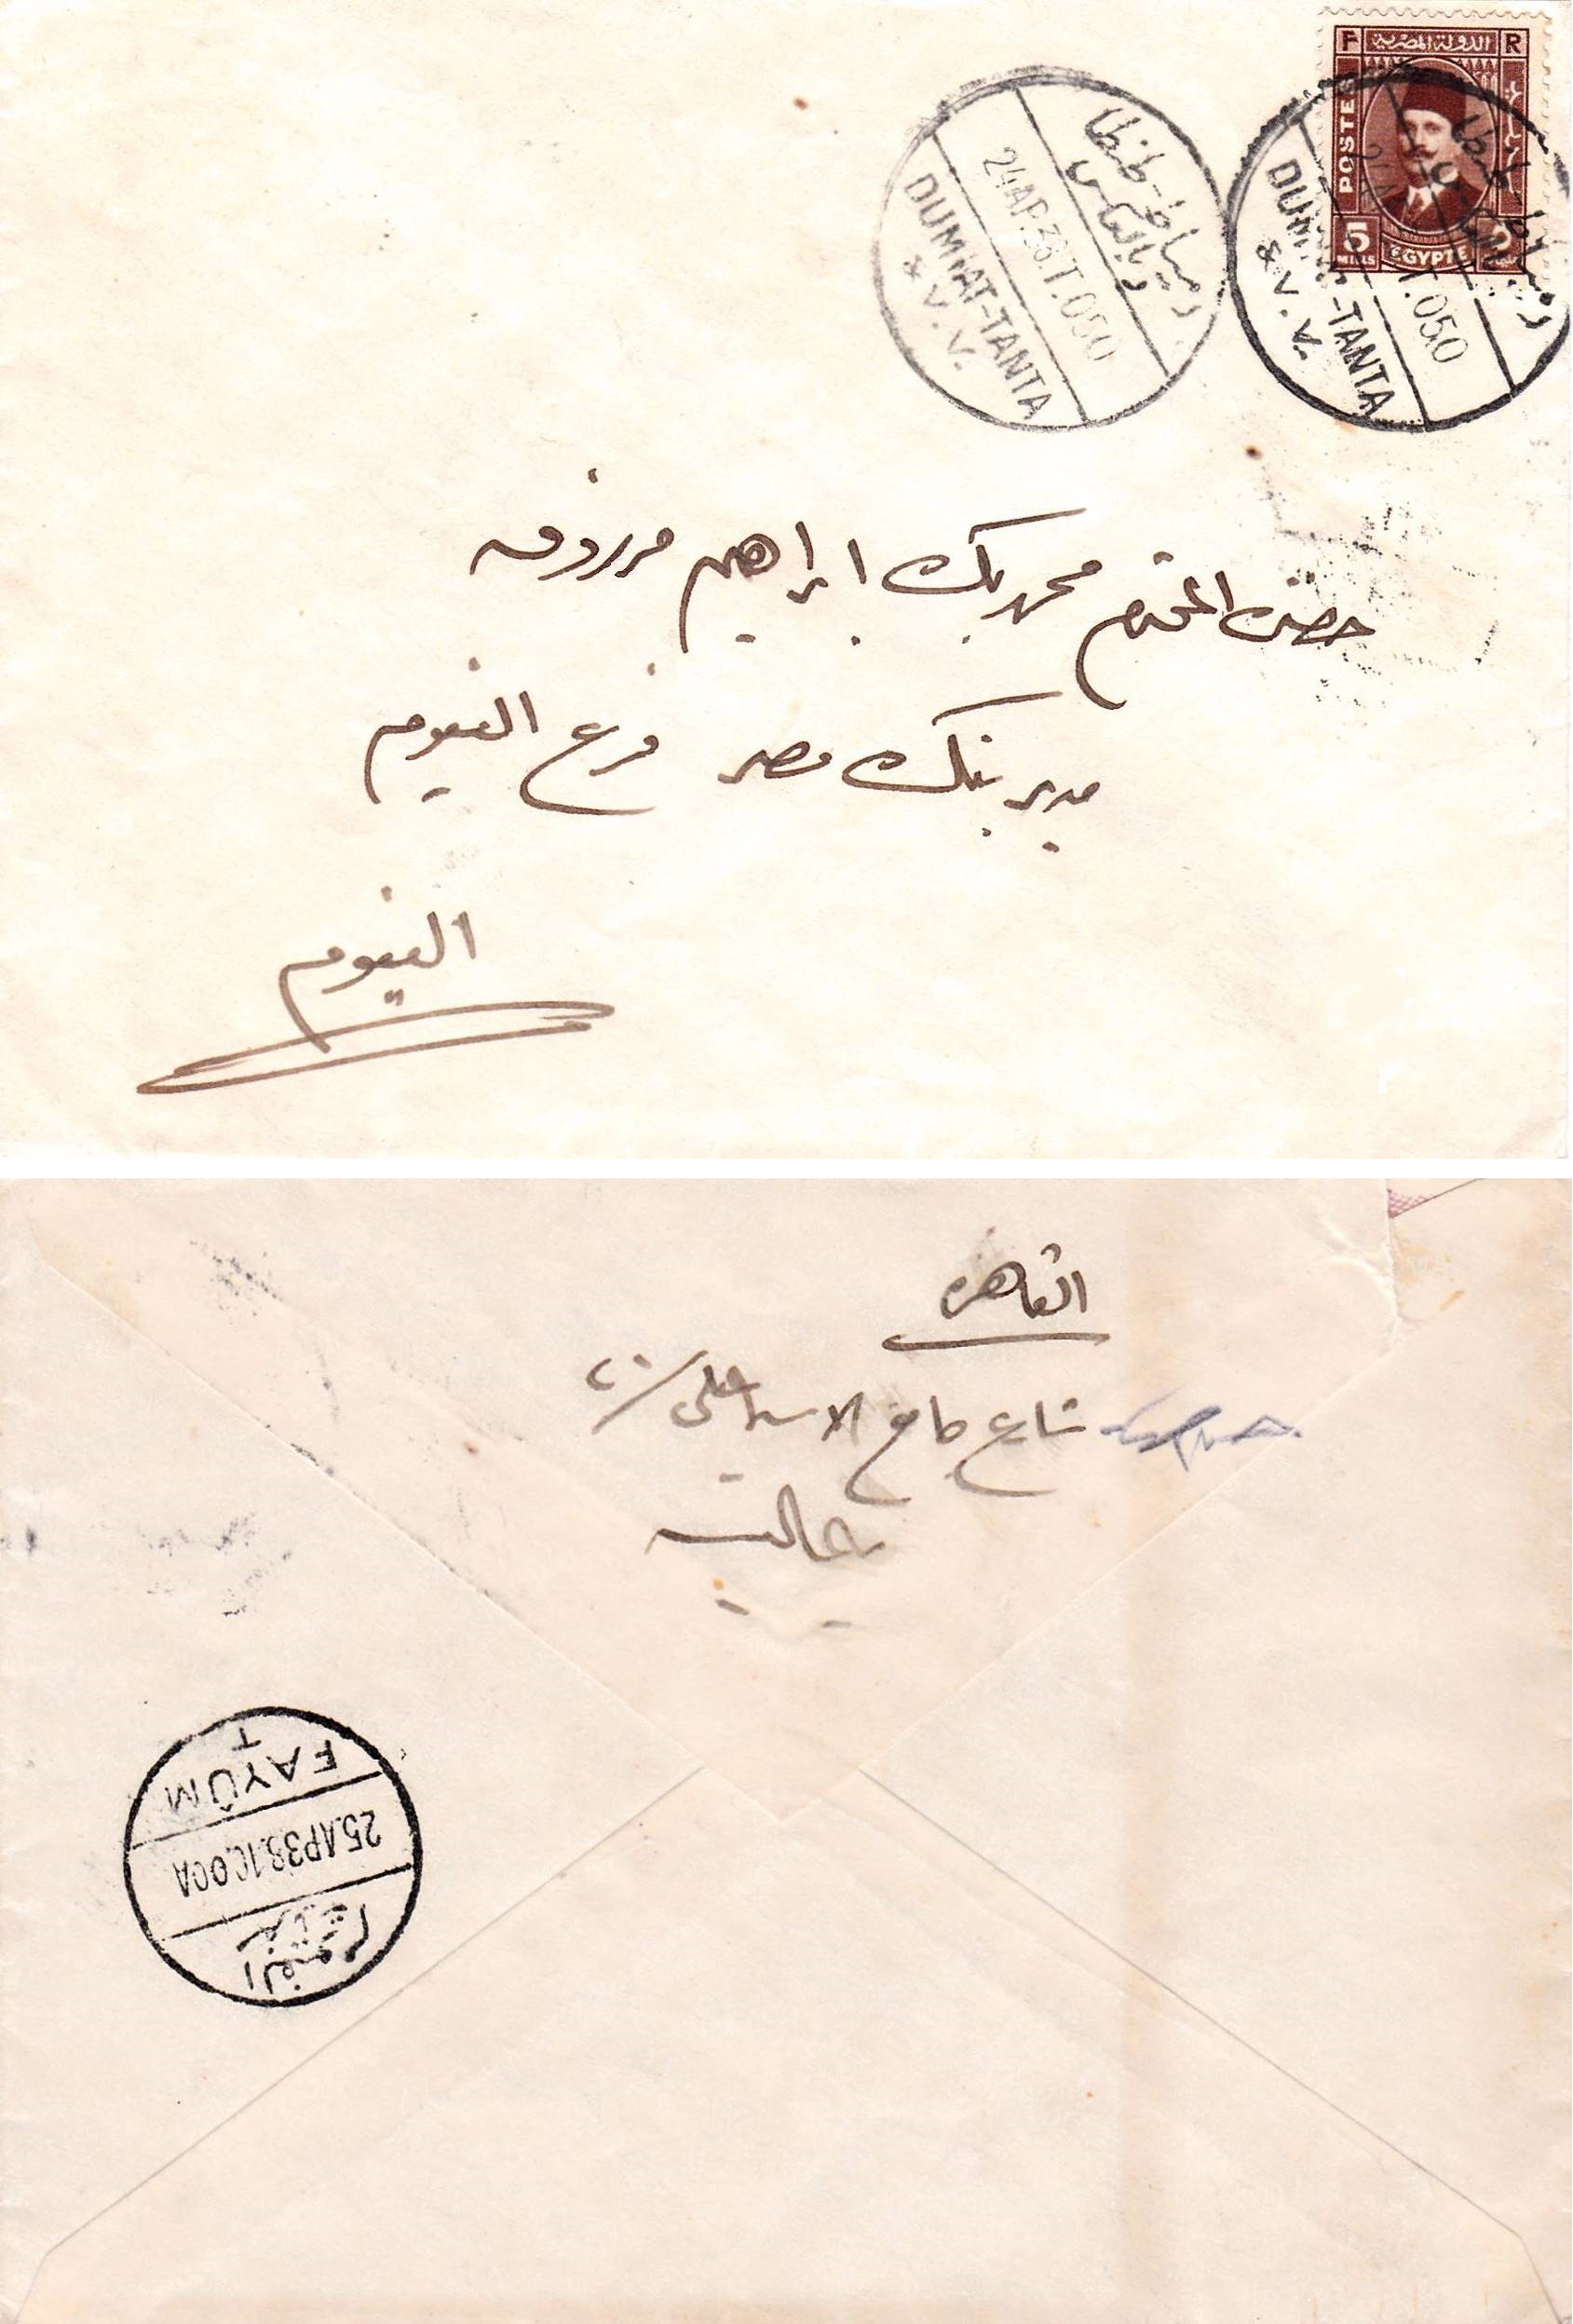 F الدولة المصرية R
POSTES
5
MILLS
EGYPTE
دمياط - طنطا
وبالعكس
24 AP.38.T.050
DUMIAT-TANTA
& V. V.
T.050
DUMIAT-TANTA
& V. V.
حضرة المحترم محمد بك ابراهيم مرزوق
مدير بنك مصر فرع الفيوم
الفيوم
القاهرة
شارع جامع الاسماعيلى / ٢٠
FAYÛM
T
25.AP38.10.00A
الفيوم